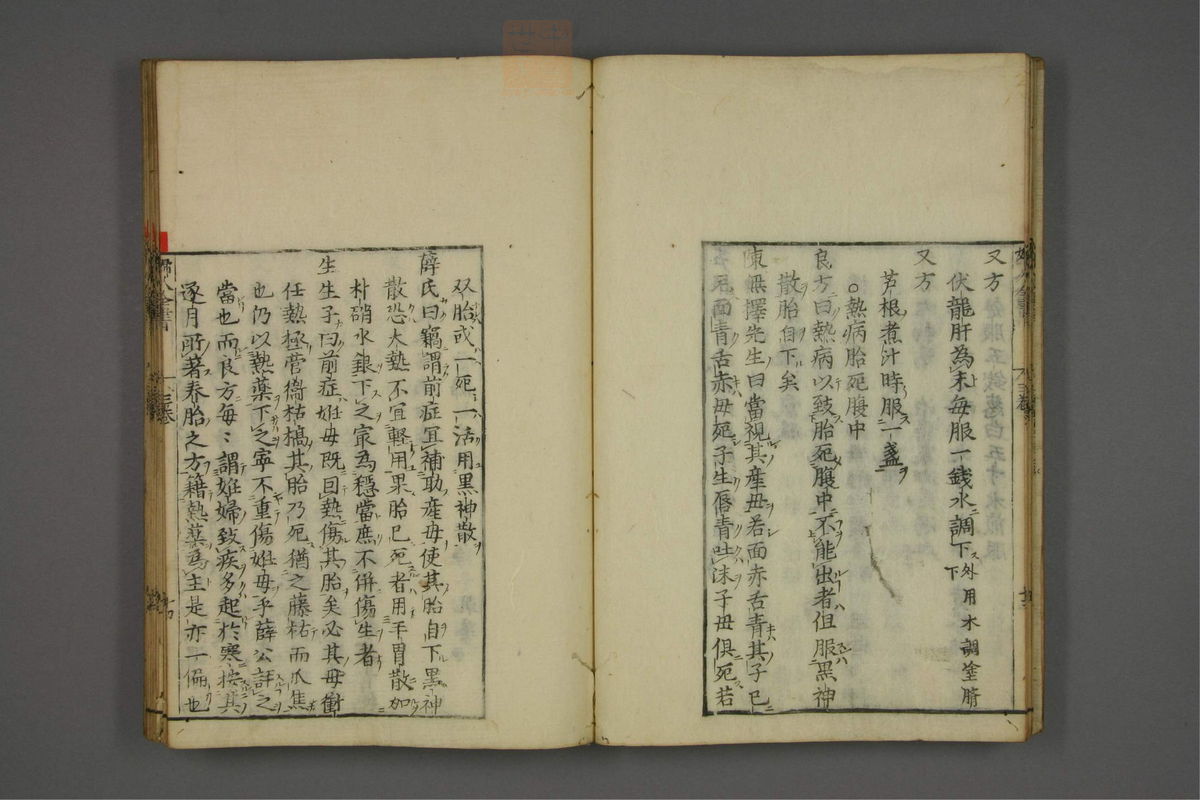 又方
伏龍肝為末每服一錢水調下外用水調塗臍下
又方
芦根煮汁時服一盞
○熱病胎死腹中
良方曰熱病以致胎死腹中不能出者但服黒神
散胎自下矣
陳無擇先生曰當視其産母若面赤舌青其子已
死面青舌赤母死子生唇青吐沫子母俱死若
双胎或一死一活用黒神散
薛氏曰竊謂前症宜補助産母使其胎自下黒神
散恐大熱不宜輕用果胎已死者用平胃散加
朴硝水銀下之㝡為穩當庶不併傷生者
生生子曰前症姙母既因熱傷其胎矣必其母衝
任熱極营衞枯槁其胎乃死猶之藤枯而爪焦
也仍以熱藥下之寧不重傷姙母乎薛公評之
當也而良方每〻謂姙婦致疾多起於寒按其
逐月所著养胎之方籍熱藥為主是亦一偏也